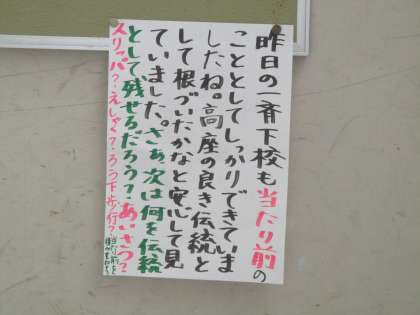 昨日の一斉下校も当たり前の
こととしてしっかりできていま
したね。高座の良き伝統と
して根づいたかなと安心して見
ていました。さあ、次は何を伝統
として残せるだろう？あいさつ？
スリッパ？えしゃく？ろう下歩行？当たり前を